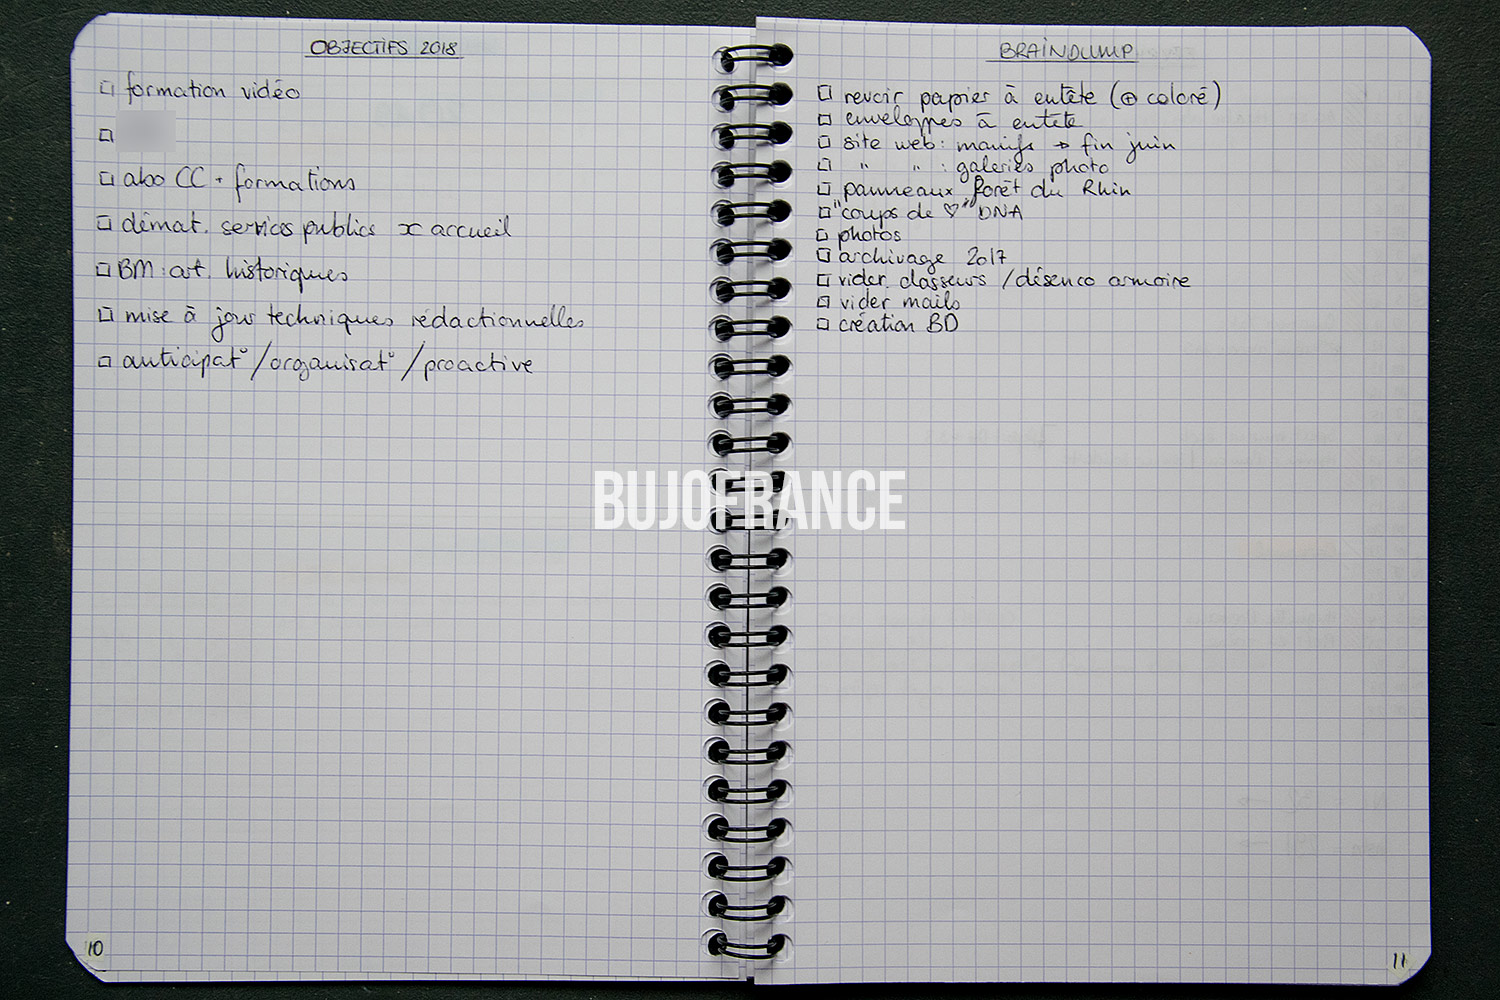 OBJECTIFS 2018
□ formation vidéo
□
□ abo CC + formations
□ démat. services publics x accueil
□ BM : art. historiques
□ mise à jour techniques rédactionnelles
□ anticipat° / organisat° / proactive
10
BRAINDUMP
□ revoir papier à entête (⊕ coloré)
□ enveloppes à entête
□ site web : manifs → fin juin
□ " " : galeries photo
□ panneaux forêt du Rhin
□ "coups de ♡" DNA
□ photos
□ archivage 2017
□ vider classeurs / désenco armoire
□ vider mails
□ création BD
11
BUJOFRANCE